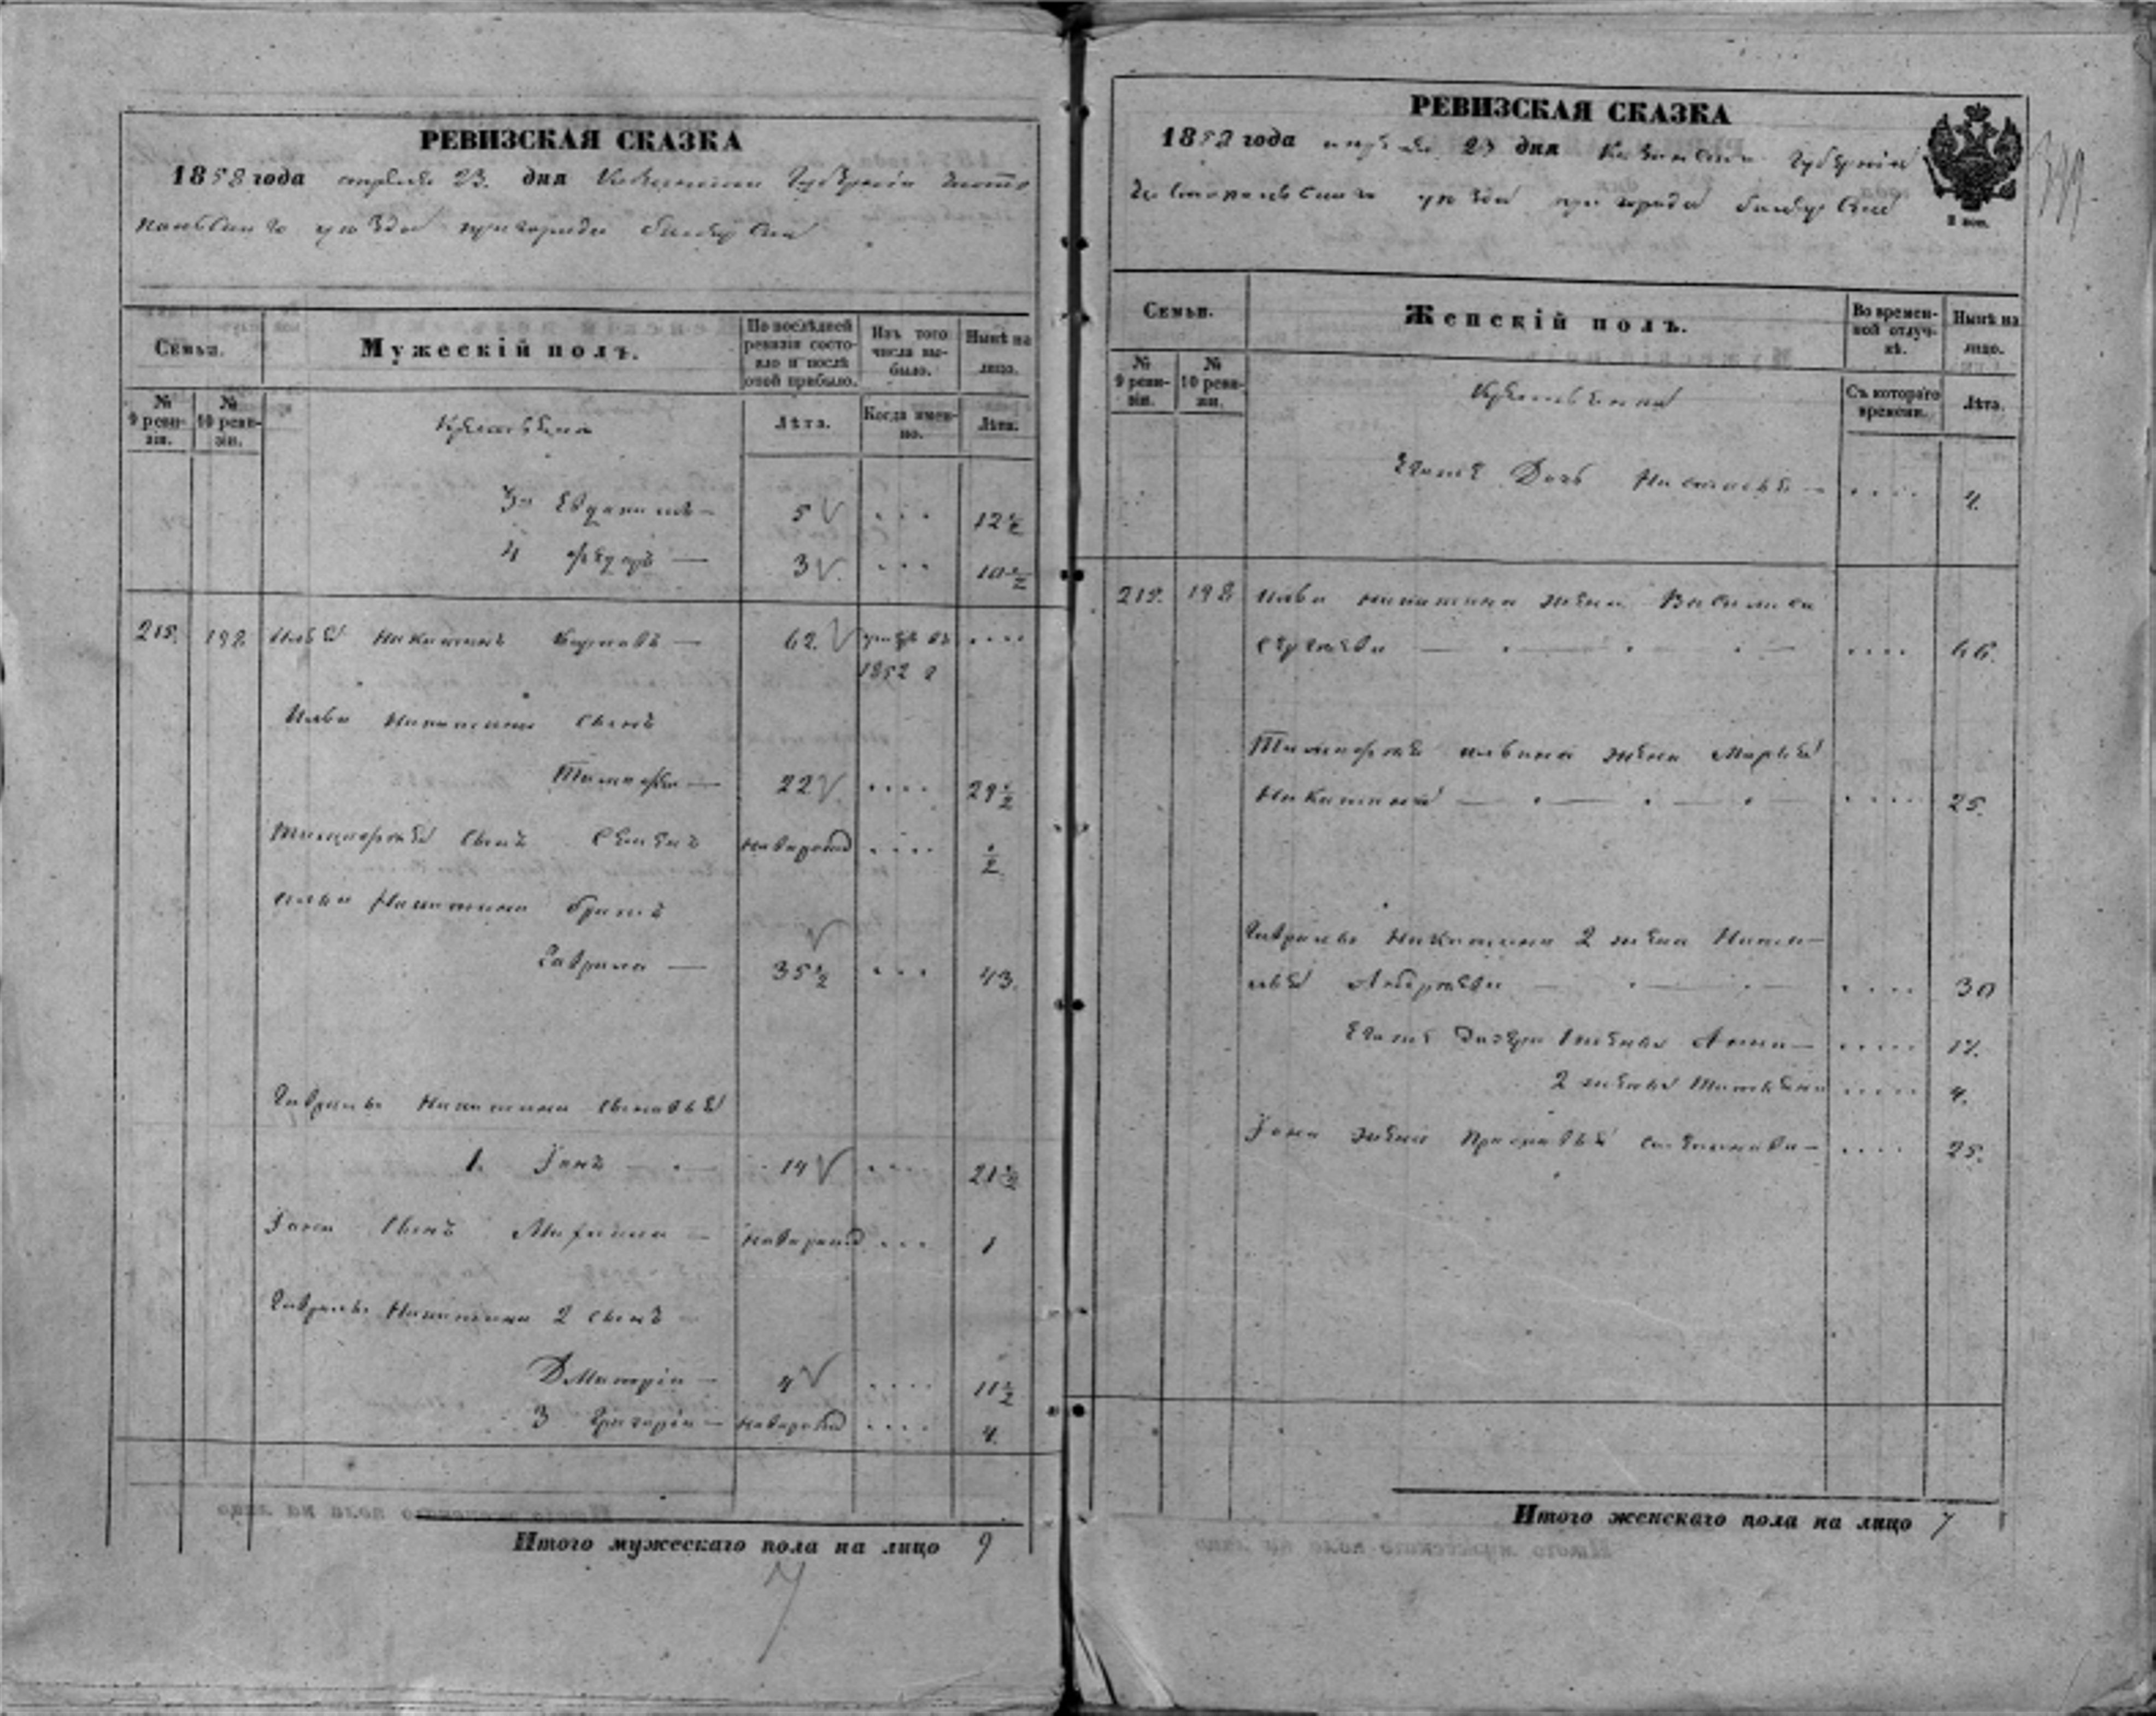 РЕВИЗСКАЯ СКАЗКА
1858 года апреля 23. дня Казанской Губернiи Чисто
польскаго уѣзда пригорода Билярска
Семьи.
Мужескiй полъ.
По послѣдней ревизiи состояло и послѣ оной прибыло.
Изъ того числа выбыло.
Нынѣ на лицо.
№ 9 ревизiи.
№ 10 ревизiи.
Лѣта.
Когда именно.
Лѣта.
3й 5 12½
4 Ѳедоръ — 3 10½
215. 192 Илья Никитинъ — 62. умеръ въ
1852 г
Илья Никитина сынъ
Тимофей — 22 29½
Тимофея сынъ Семенъ новорожд ½
Ильи Никитина братъ
Гаврила — 35½ 43.
Гаврилы Никитина сыновья
1. Iонъ — 14 21½
Iона сынъ Михаила — новорожд 1
Гаврилы Никитина 2 сынъ
Дмитрiй — 4 11½
3 Григорiй — новорожд 4.
Итого мужескаго пола на лицо 9
РЕВИЗСКАЯ СКАЗКА
1858 года апреля 23 дня Казанской Губернiи
Чистопольскаго уѣзда пригорода Билярска
Семьи.
Женскiй полъ.
Во временной отлучкѣ.
Нынѣ на лицо.
№ 9 ревизiи.
№ 10 ревизiи.
Съ котораго времени.
Лѣта.
Его же Дочь Настасья — 4.
215. 192 Ильи Никитина жена Василиса
Сергеева 66.
Тимофея Ильина жена Марья
Никитина 25.
Гаврилы Никитина 2 жена Ната-
лья Андреева 30
Его же дочери 1 жены Анна — 17.
2 жены Татьяна 4.
Iона жена Прасковья — 25.
Итого женскаго пола на лицо 7